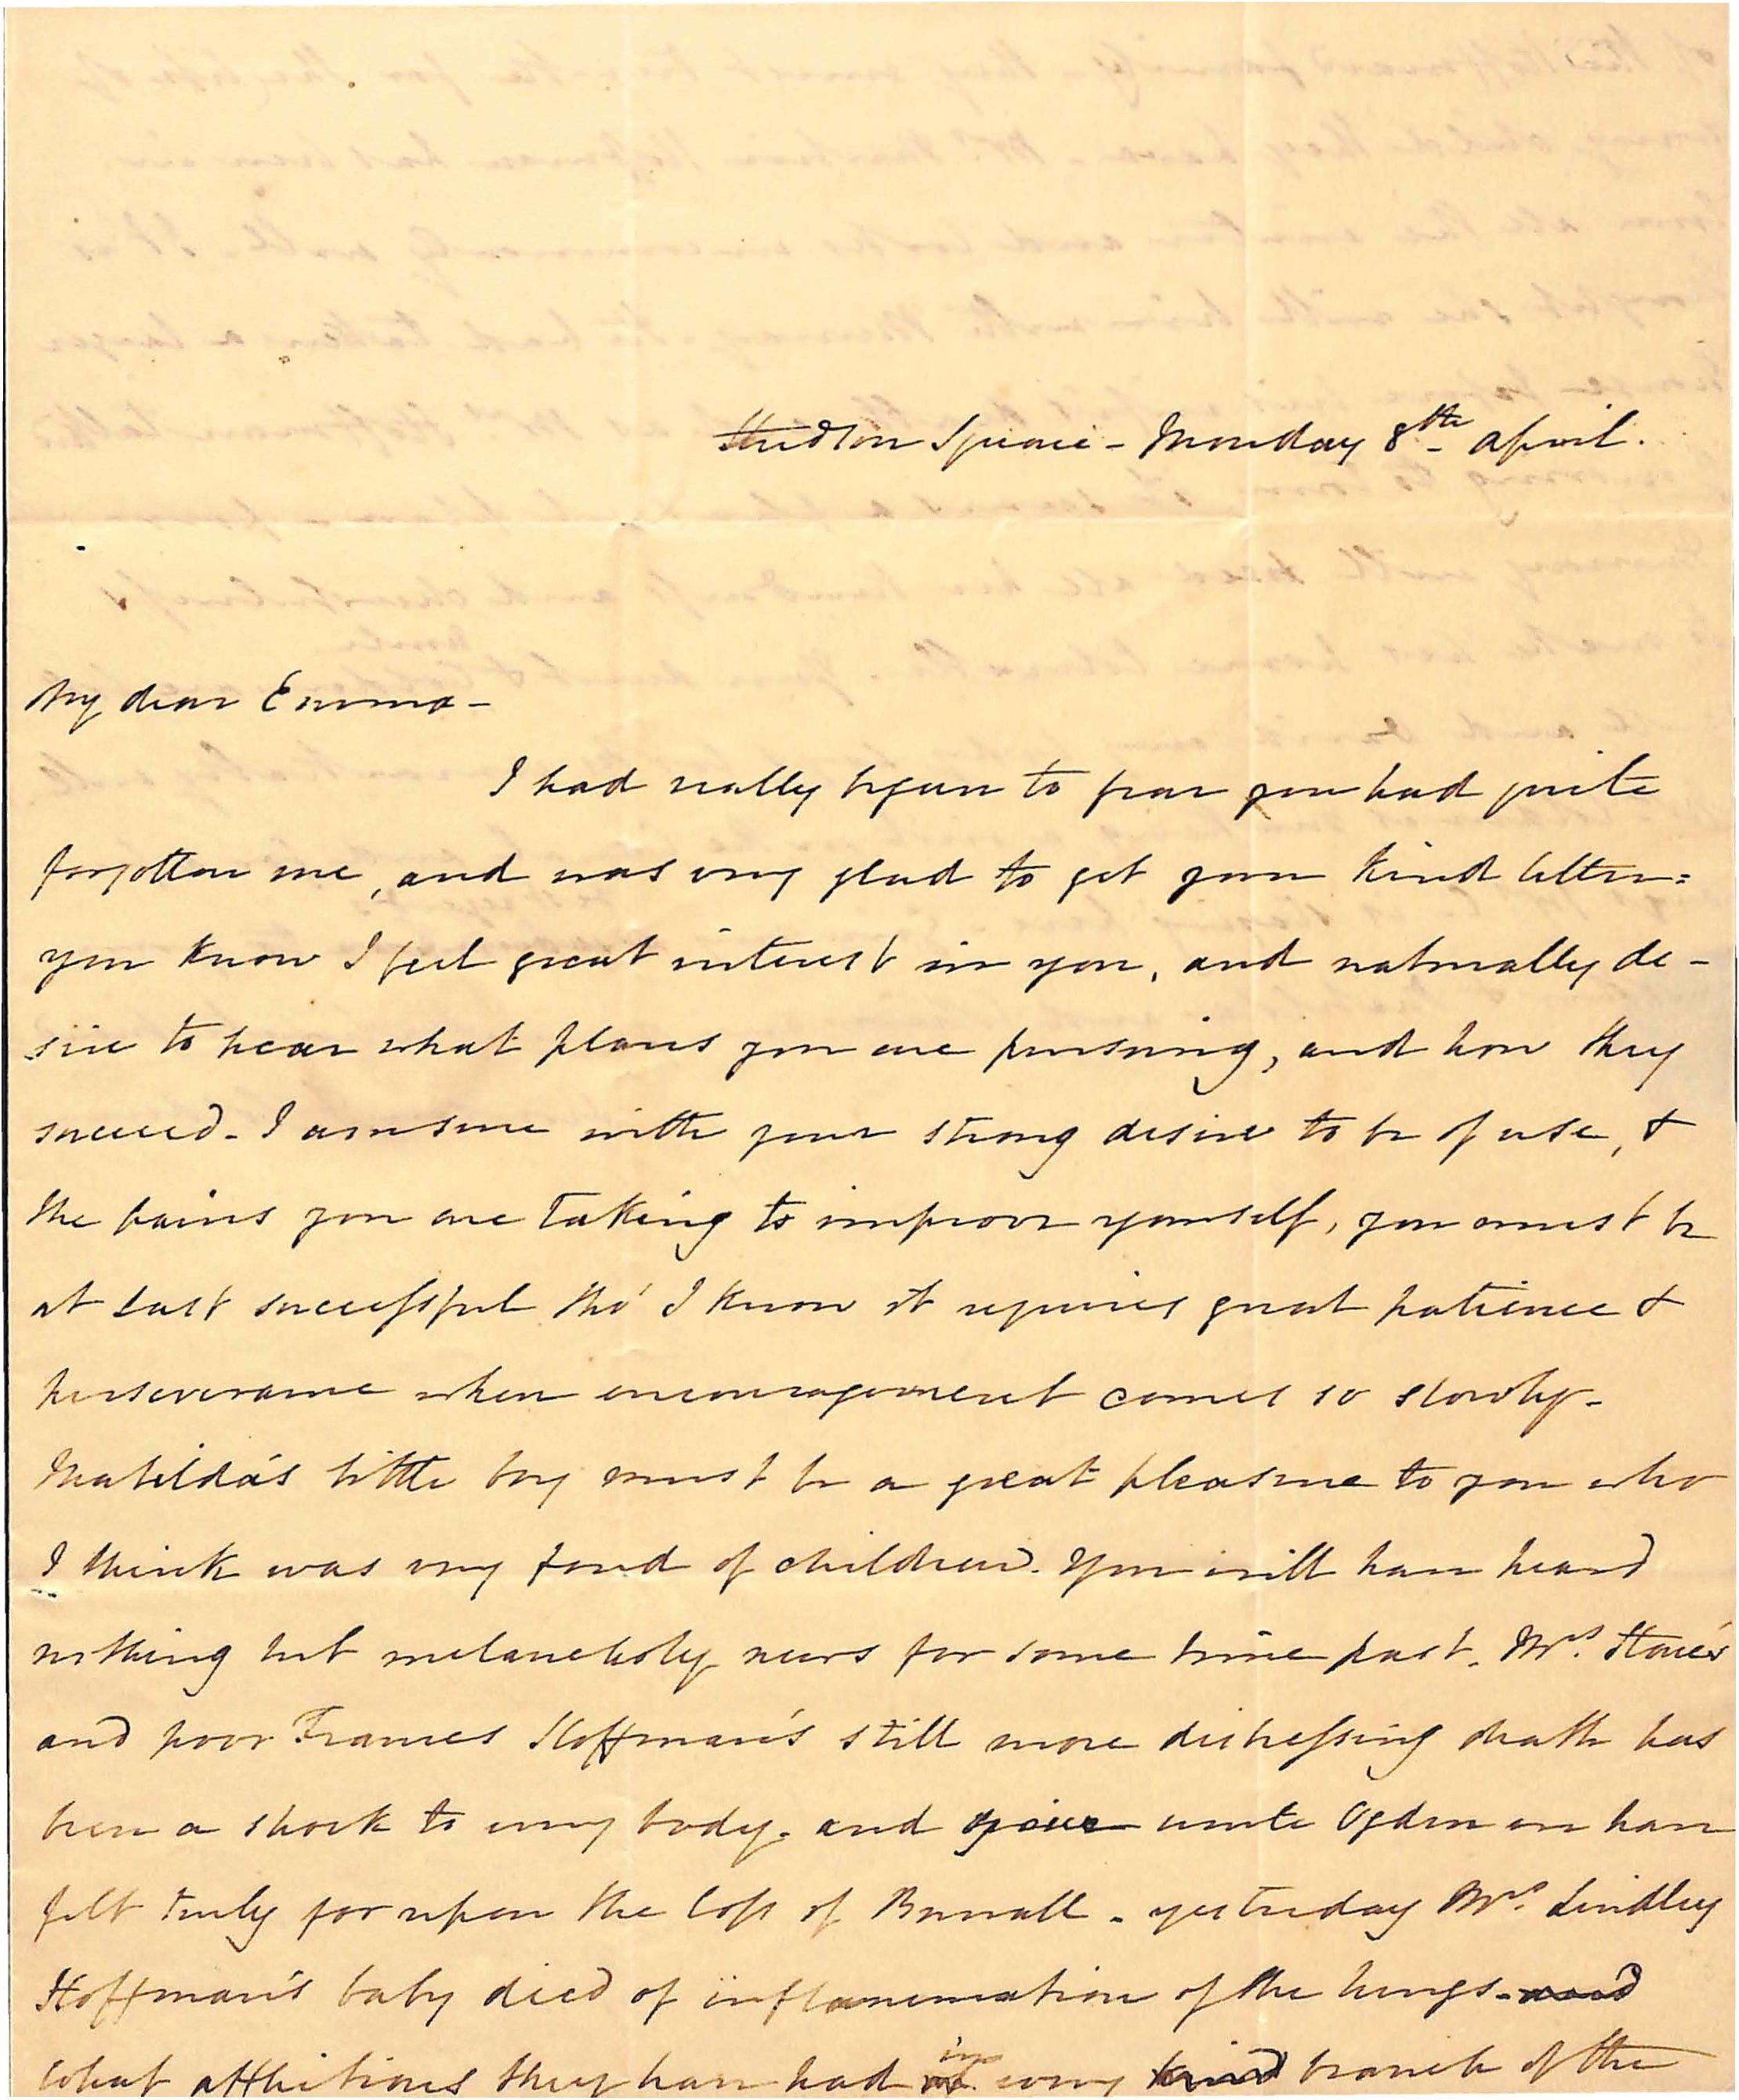 Hudson Square - Monday 8th April.
My dear Emma -
I had really begun to fear you had quite
forgotten me, and was very glad to get your kind letter =
you know I feel great interest in you, and naturally de -
sire to hear what plans you are pursuing, and how they
succeed - I am sure with your strong desire to be of use, &
the pains you are taking to improve yourself, you must be
at last successful tho' I know it requires great patience &
perseverance when encouragement comes so slowly -
Matilda's little boy must be a great pleasure to you who
I think was very fond of children. You will have heard
nothing but melancholy news for some time past. Mrs. Stone's
and poor Frances Hoffman's still more distressing death has
been a shock to every body. and your uncle Ogden we have
felt truly for upon the loss of - yesterday Mrs. Lindley
Hoffman's baby died of inflammation of the lungs - and
what afflictions they have had in every kind branch of the